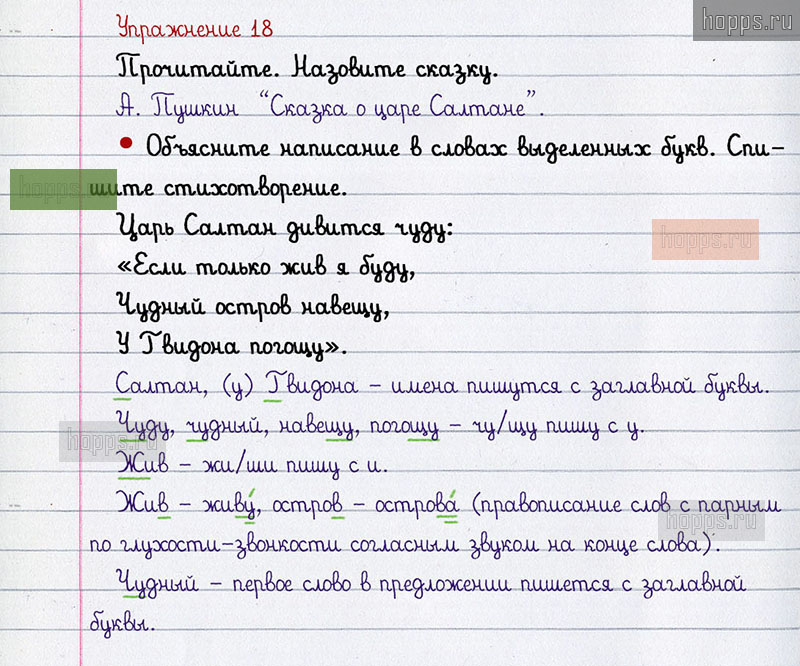 hopps.ru
Упражнение 18
Прочитайте. Назовите сказку.
А. Пушкин "Сказка о царе Салтане".
• Объясните написание в словах выделенных букв. Спи-
шите стихотворение.
hopps.ru
Царь Салтан дивится чуду:
hopps.ru
«Если только жив я буду,
Чудный остров навещу,
У Гвидона погощу».
Салтан, (у) Гвидона – имена пишутся с заглавной буквы.
Чуду, чудный, навещу, погощу – чу/щу пишу с у.
hopps.ru
Жив – жи/ши пишу с и.
Жив – живу́, остров – острова́ (правописание слов с парным
hopps.ru
по глухости-звонкости согласным звуком на конце слова).
Чудный – первое слово в предложении пишется с заглавной
буквы.